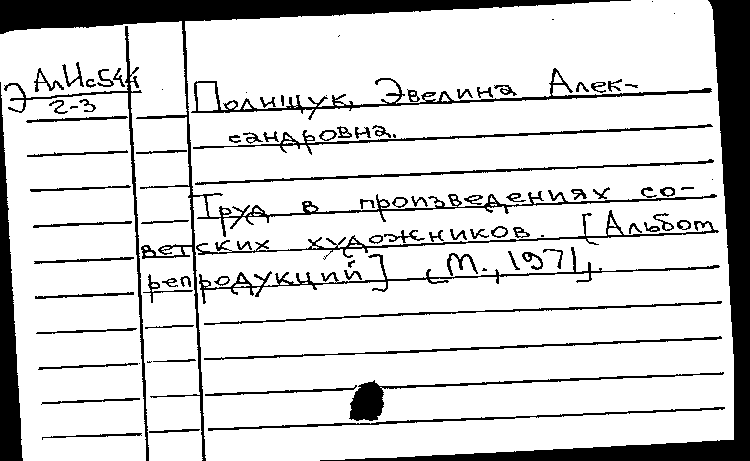 Э АлИс544
2-3
Полищук, Эвелина Алек-
сандровна.
Труд в произведениях со-
ветских художников. [Альбом
репродукций] [М., 1971].